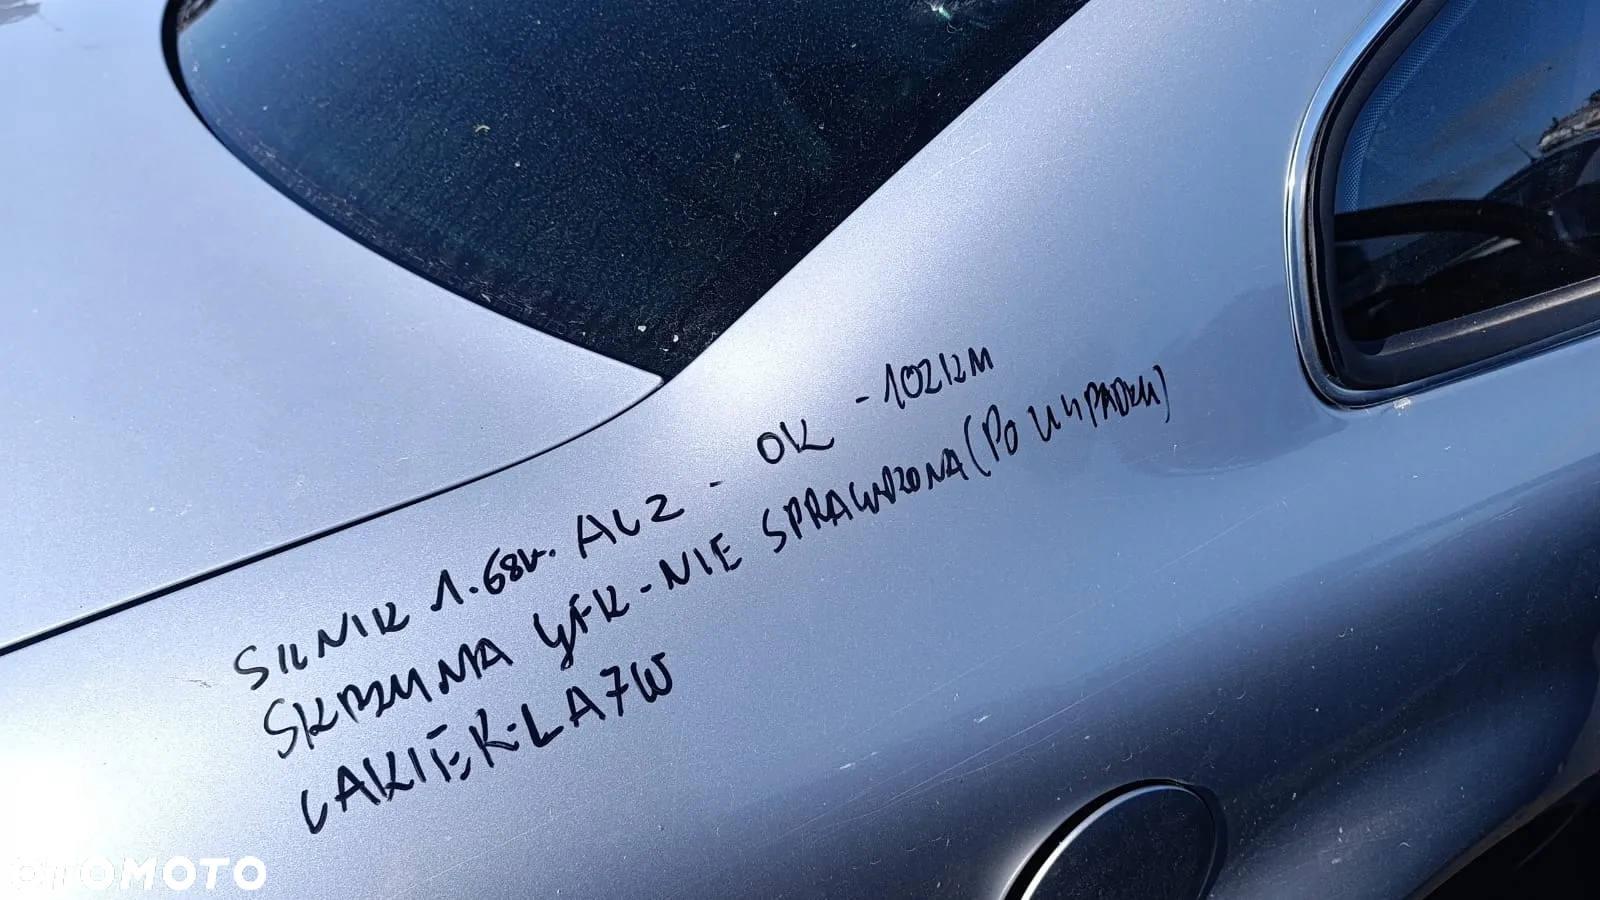 SILNIK 1.6 8V. ALZ - OK - 102KM
SKRZYNIA GFK - NIE SPRAWDZONA (PO WYPADKU)
LAKIER - LA7W
OTOMOTO